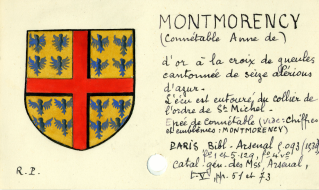 MONTMORENCY
(Connétable Anne de)
d'or à la croix de gueules
cantonnée de seize alérions
d'azur.
L'écu est entouré du collier de
l'ordre de St Michel.
Epée de Connétable (vide: chiffres
et emblèmes: MONTMORENCY)
PARIS Bibl. Arsenal
catal. gén. des Mss, Arsenal,
pp. 51 et 73
R.P.